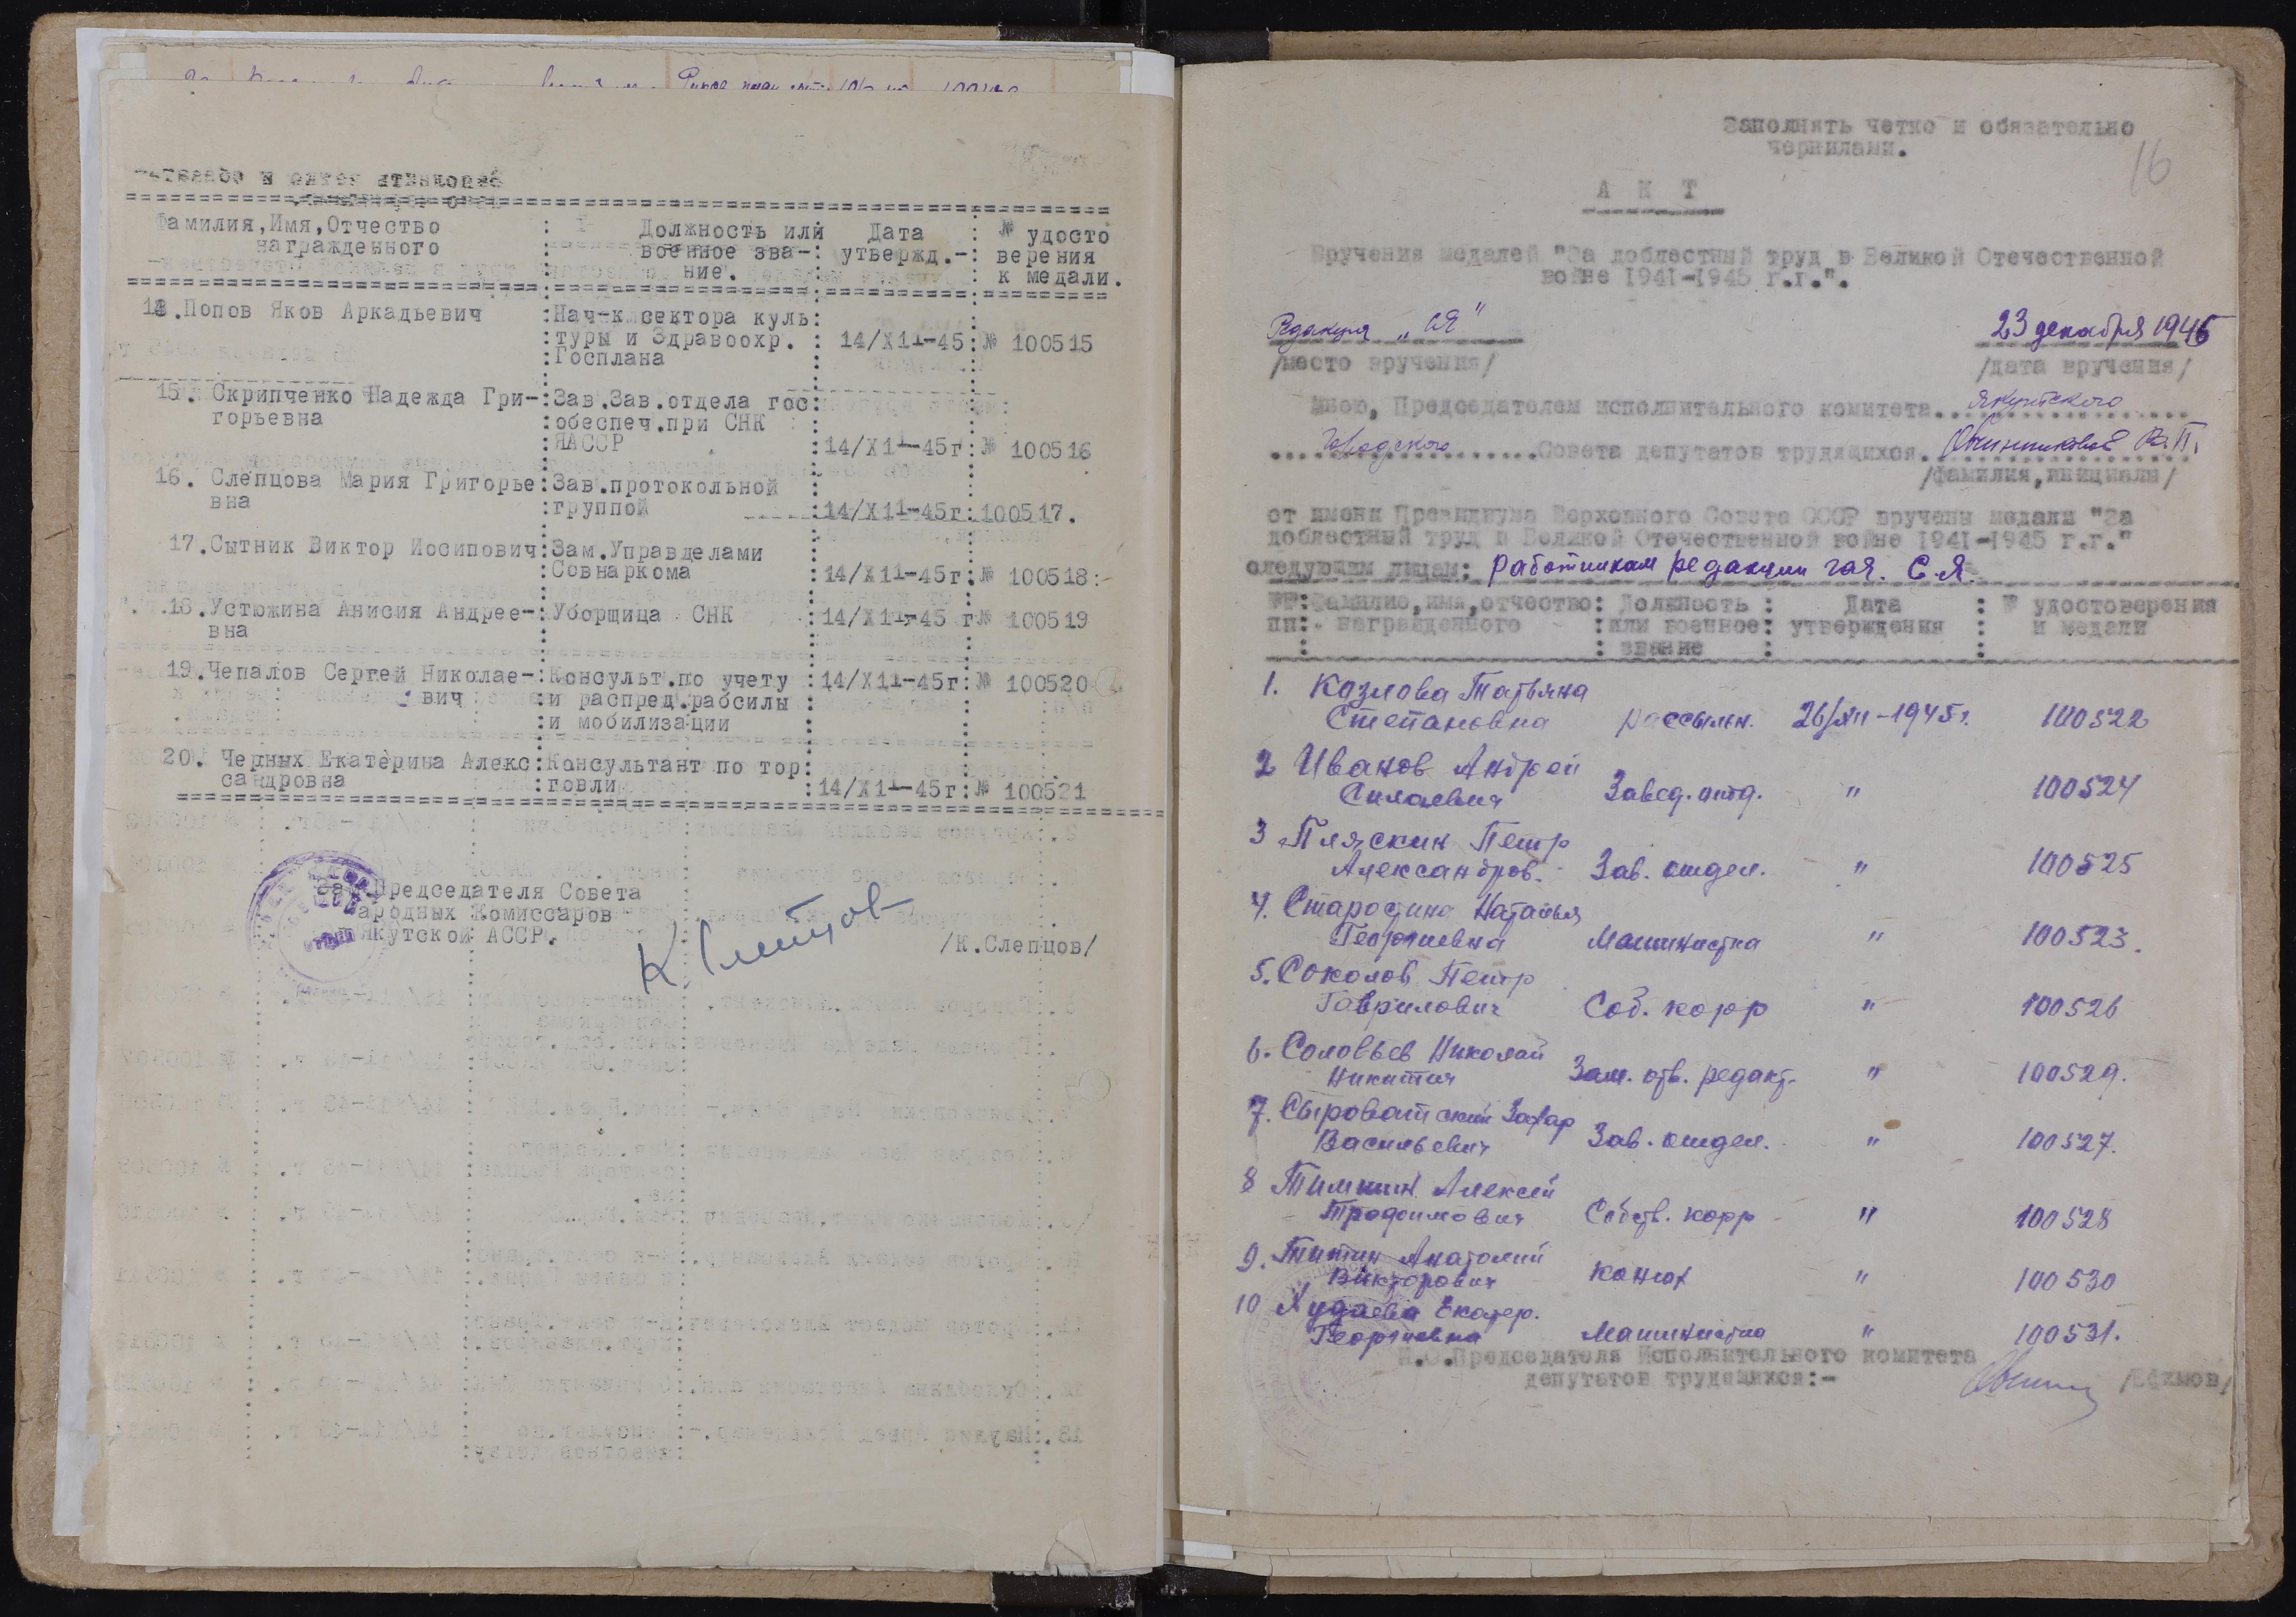 Фамилия,Имя,Отчество : Должность или : Дата : № удосто
награжденного : военное зва-: утвержд.-: верения
ние. : к медали.
14.Попов Яков Аркадьевич :Нач-к.сектора куль:
:туры и Здравоохр. : 14/X11-45:№ 100515
:Госплана
15. Скрипченко Надежда Гри-:Зав.Зав.отдела гос:
горьевна :обеспеч.при СНК
:ЯАССР :14/X11-45г:№ 100516
16. Слепцова Мария Григорье:Зав.протокольной
вна :группой :14/X11-45г:100517.
17.Сытник Виктор Иосипович:Зам.Управделами
:Совнаркома :14/X11-45г:№ 100518:-
18.Устюжина Анисия Андрее-:Уборщица СНК :14/X11-45 г№ 100519
вна
19.Чепалов Сергей Николае-:Консульт.по учету :14/X11-45г:№ 100520
вич :и распред.рабсилы
:и мобилизации
20. Черных Екатерина Алекс:Консультант по тор:
сандровна :говли :14/X11-45г:№ 100521
Зам.Председателя Совета
Народных Комиссаров
Якутской АССР.
К Слепцов
/К.Слепцов/
Заполнять четко и обязательно
чернилами.
16
А К Т
Вручения медалей "За доблестный труд в Великой Отечественной
войне 1941-1945 г.г.".
Редакция „СЯ" 23 декабря 1946
/место вручения/ /дата вручения/
Мною, Председателем исполнительного комитета..Якутского
Городского Совета депутатов трудящихся.
/фамилия,инициалы/
от имени Президиума Верховного Совета СССР вручены медали "За
доблестный труд в Великой Отечественной войне 1941-1945 г.г."
следующим лицам: работникам редакции газ. С.Я.
№№:Фамилие,имя,отчество: Должность : Дата : № удостоверения
пп: награжденного :или военное: утверждения : и медали
: : звание : :
1. Козлова Татьяна
Степановна рассыльн. 26/XII-1945г. 100522
2 Иванов Андрей
Силаевич Завед. отд. " 100524
3 Пляскин Петр
Александров. Зав. отдел. " 100525
4. Старостина Наталья
Георгиевна Машинистка " 100523.
5. Соколов Петр
Гаврилович Соб. корр " 100526
6. Соловьев Николай
Никитич Зам. отв. редакт. " 100529.
7. Сыроватский Захар
Васильевич Зав. отдел. " 100527.
8 Тимшин Алексей
Трофимович Собств. корр " 100528
9. Титин Анатолий
Викторович конюх " 100530
10 Худаева Екатер.
Георгиевна Машинистка " 100531.
И.О.Председателя Исполнительного комитета
депутатов трудящихся:- /Ефимов/